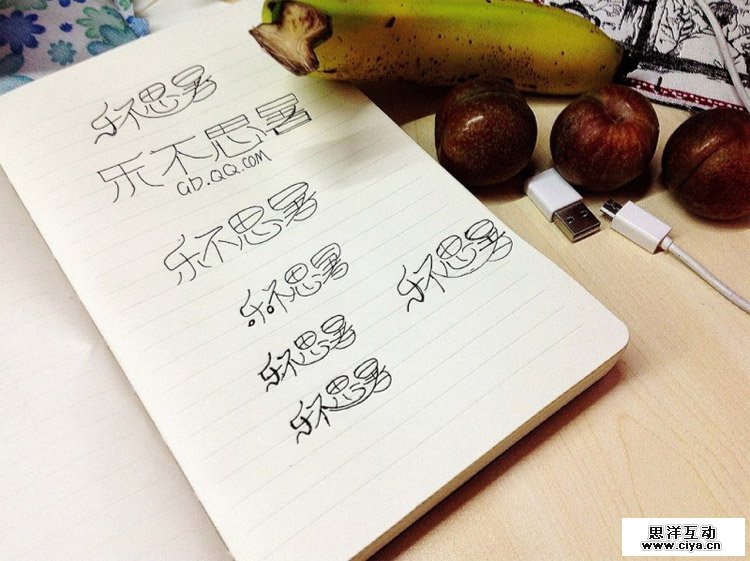 乐不思暑
乐不思暑
GD.QQ.COM
乐不思暑
乐不思暑
乐不思暑
乐不思暑
乐不思暑
思洋互动
www.ciya.cn